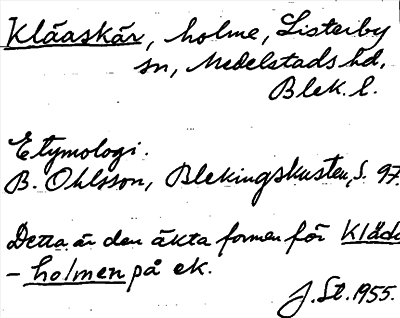 Kläaskär, holme, Listerby
sn, Medelstads hd,
Blek. l.
Etymologi.
B. Ohlsson, Blekingskusten, S. 97.
Detta är den äkta formen för Kläde
- holmen på ek.
J. St. 1955.